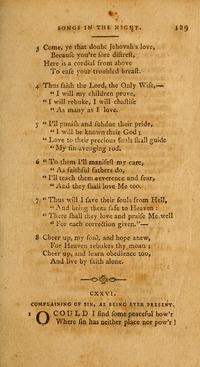 SONGS IN THE NIGHT. 129
3 Come, ye that doubt Jehovah's love,
Because you're sore distrest,
Here is a cordial from above
To ease your troubled breast.
4 Thus saith the Lord, the Only Wise,—
" I will my children prove,
" I will rebuke, I will chastise
" As many as I love.
5 " I'll punish and subdue their pride,
" I will be known their God ;
" Love to their precious souls shall guide
" My sin-avenging rod.
6 " To them I'll manifest my care,
" As faithful fathers do,
" I'll teach them reverence and fear,
" And they shall love Me too.
7 " Thus will I save their souls from Hell,
" And bring them safe to Heaven ;
" There shall they love and praise Me well
" For each correction given."—
8 Cheer up, my soul, and hope anew,
For Heaven rebukes thy moan ;
Cheer up, and learn obedience too,
And live by faith alone.
CXXVI.
COMPLAINING OF SIN, AS BEING EVER PRESENT.
1 O COULD I find some peaceful bow'r
Where sin has neither place nor pow'r !